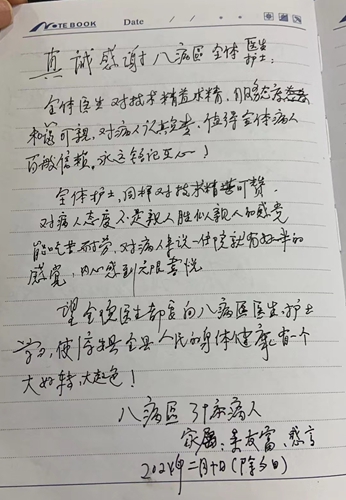 NOTEBOOK Date / /
真诚感谢八病区全体医生
护士:
全体医生对技术精益求精,服务态度
和谐可亲,对病人认真负责,值得全体病人
百般信赖。永远铭记在心!
全体护士,同样对技术精益可赞,
对病人态度不是亲人胜似亲人的感觉
能吃苦耐劳,对病人来说一住院就有好半的
感觉,内心感到无限喜悦
望全院医生都向八病区医生护士
学习,使全县人民的身体健康有一个
大好转,大起色!
八病区 31床病人
家属:友富
2024年二月十日